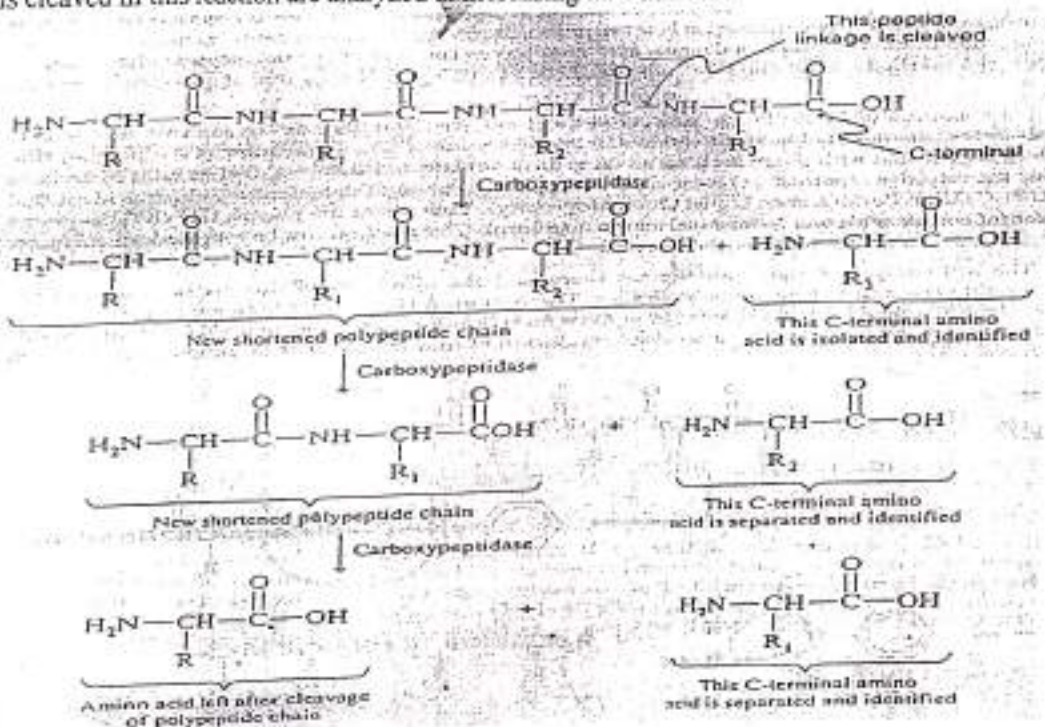 is cleaved in this reaction are analyzed
This peptide
linkage is cleaved
O O O O
H₂N—CH—C—NH—CH—C—NH—CH—C—NH—CH—C—OH
R R₁ R₂ R₃
C-terminal
Carboxypeptidase
O O O O
H₂N—CH—C—NH—CH—C—NH—CH—C—OH + H₂N—CH—C—OH
R R₁ R₂ R₃
New shortened polypeptide chain
This C-terminal amino
acid is isolated and identified
Carboxypeptidase
O O O
H₂N—CH—C—NH—CH—COH + H₂N—CH—C—OH
R R₁ R₂
New shortened polypeptide chain
This C-terminal amino
acid is separated and identified
Carboxypeptidase
O O
H₂N—CH—C—OH + H₂N—CH—C—OH
R R₁
Amino acid left after cleavage
of polypeptide chain
This C-terminal amino
acid is separated and identified